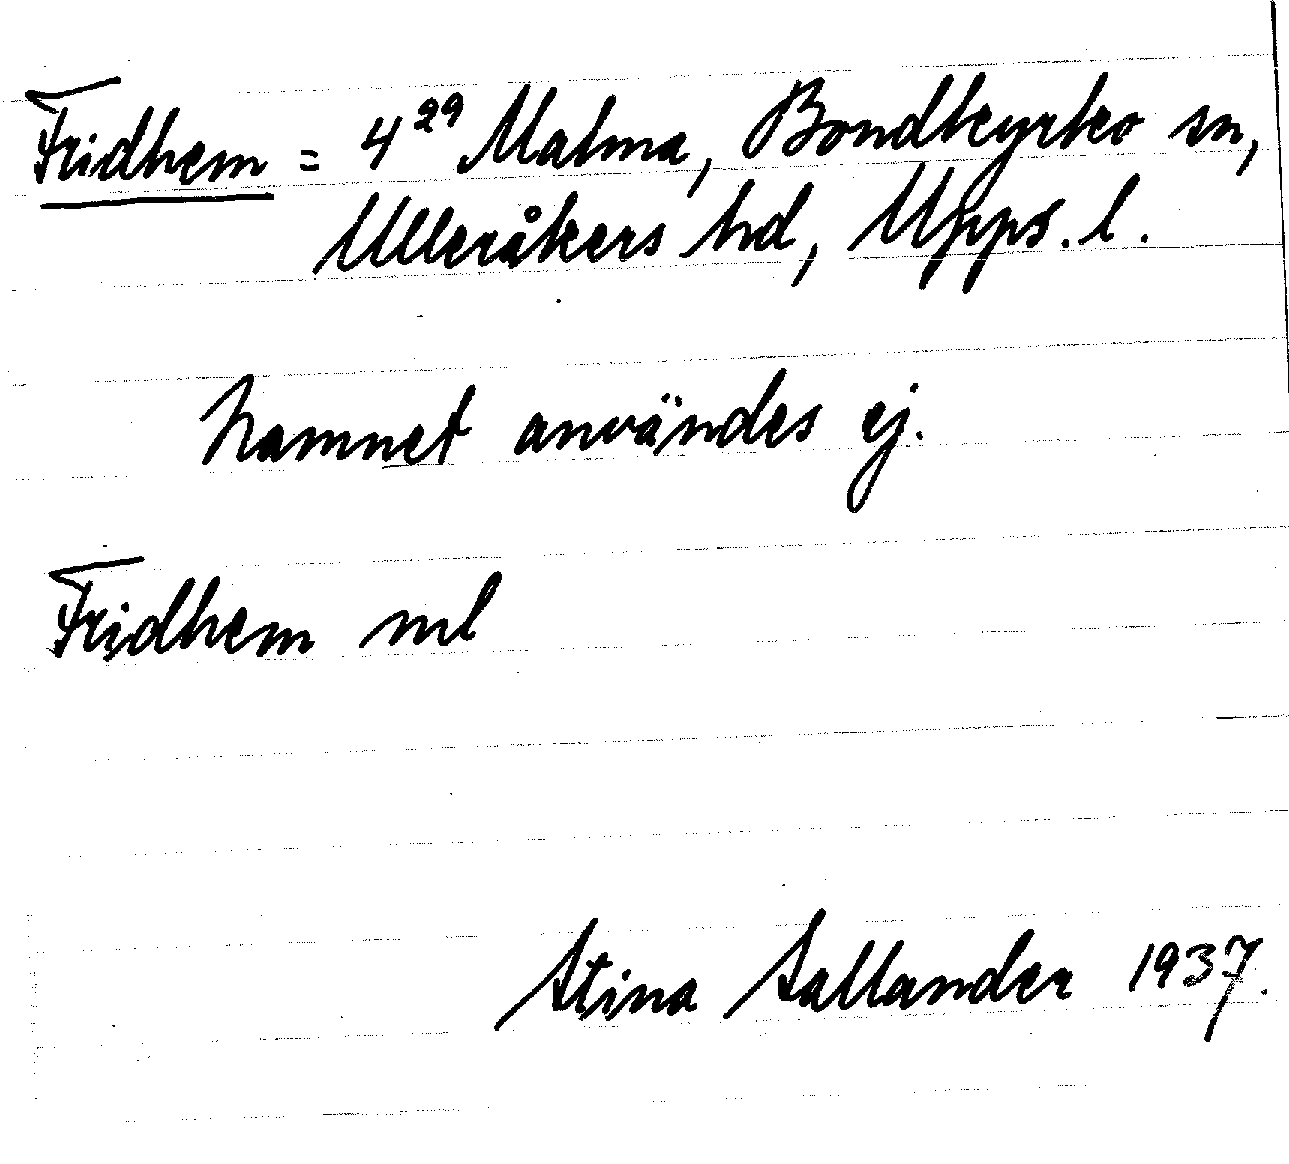 Fridhem = 4²⁹ Malma, Bondkyrko sn,
Ulleråkers hd, Upps. l.
Namnet användes ej.
Fridhem ml
Stina Sallander 1937.